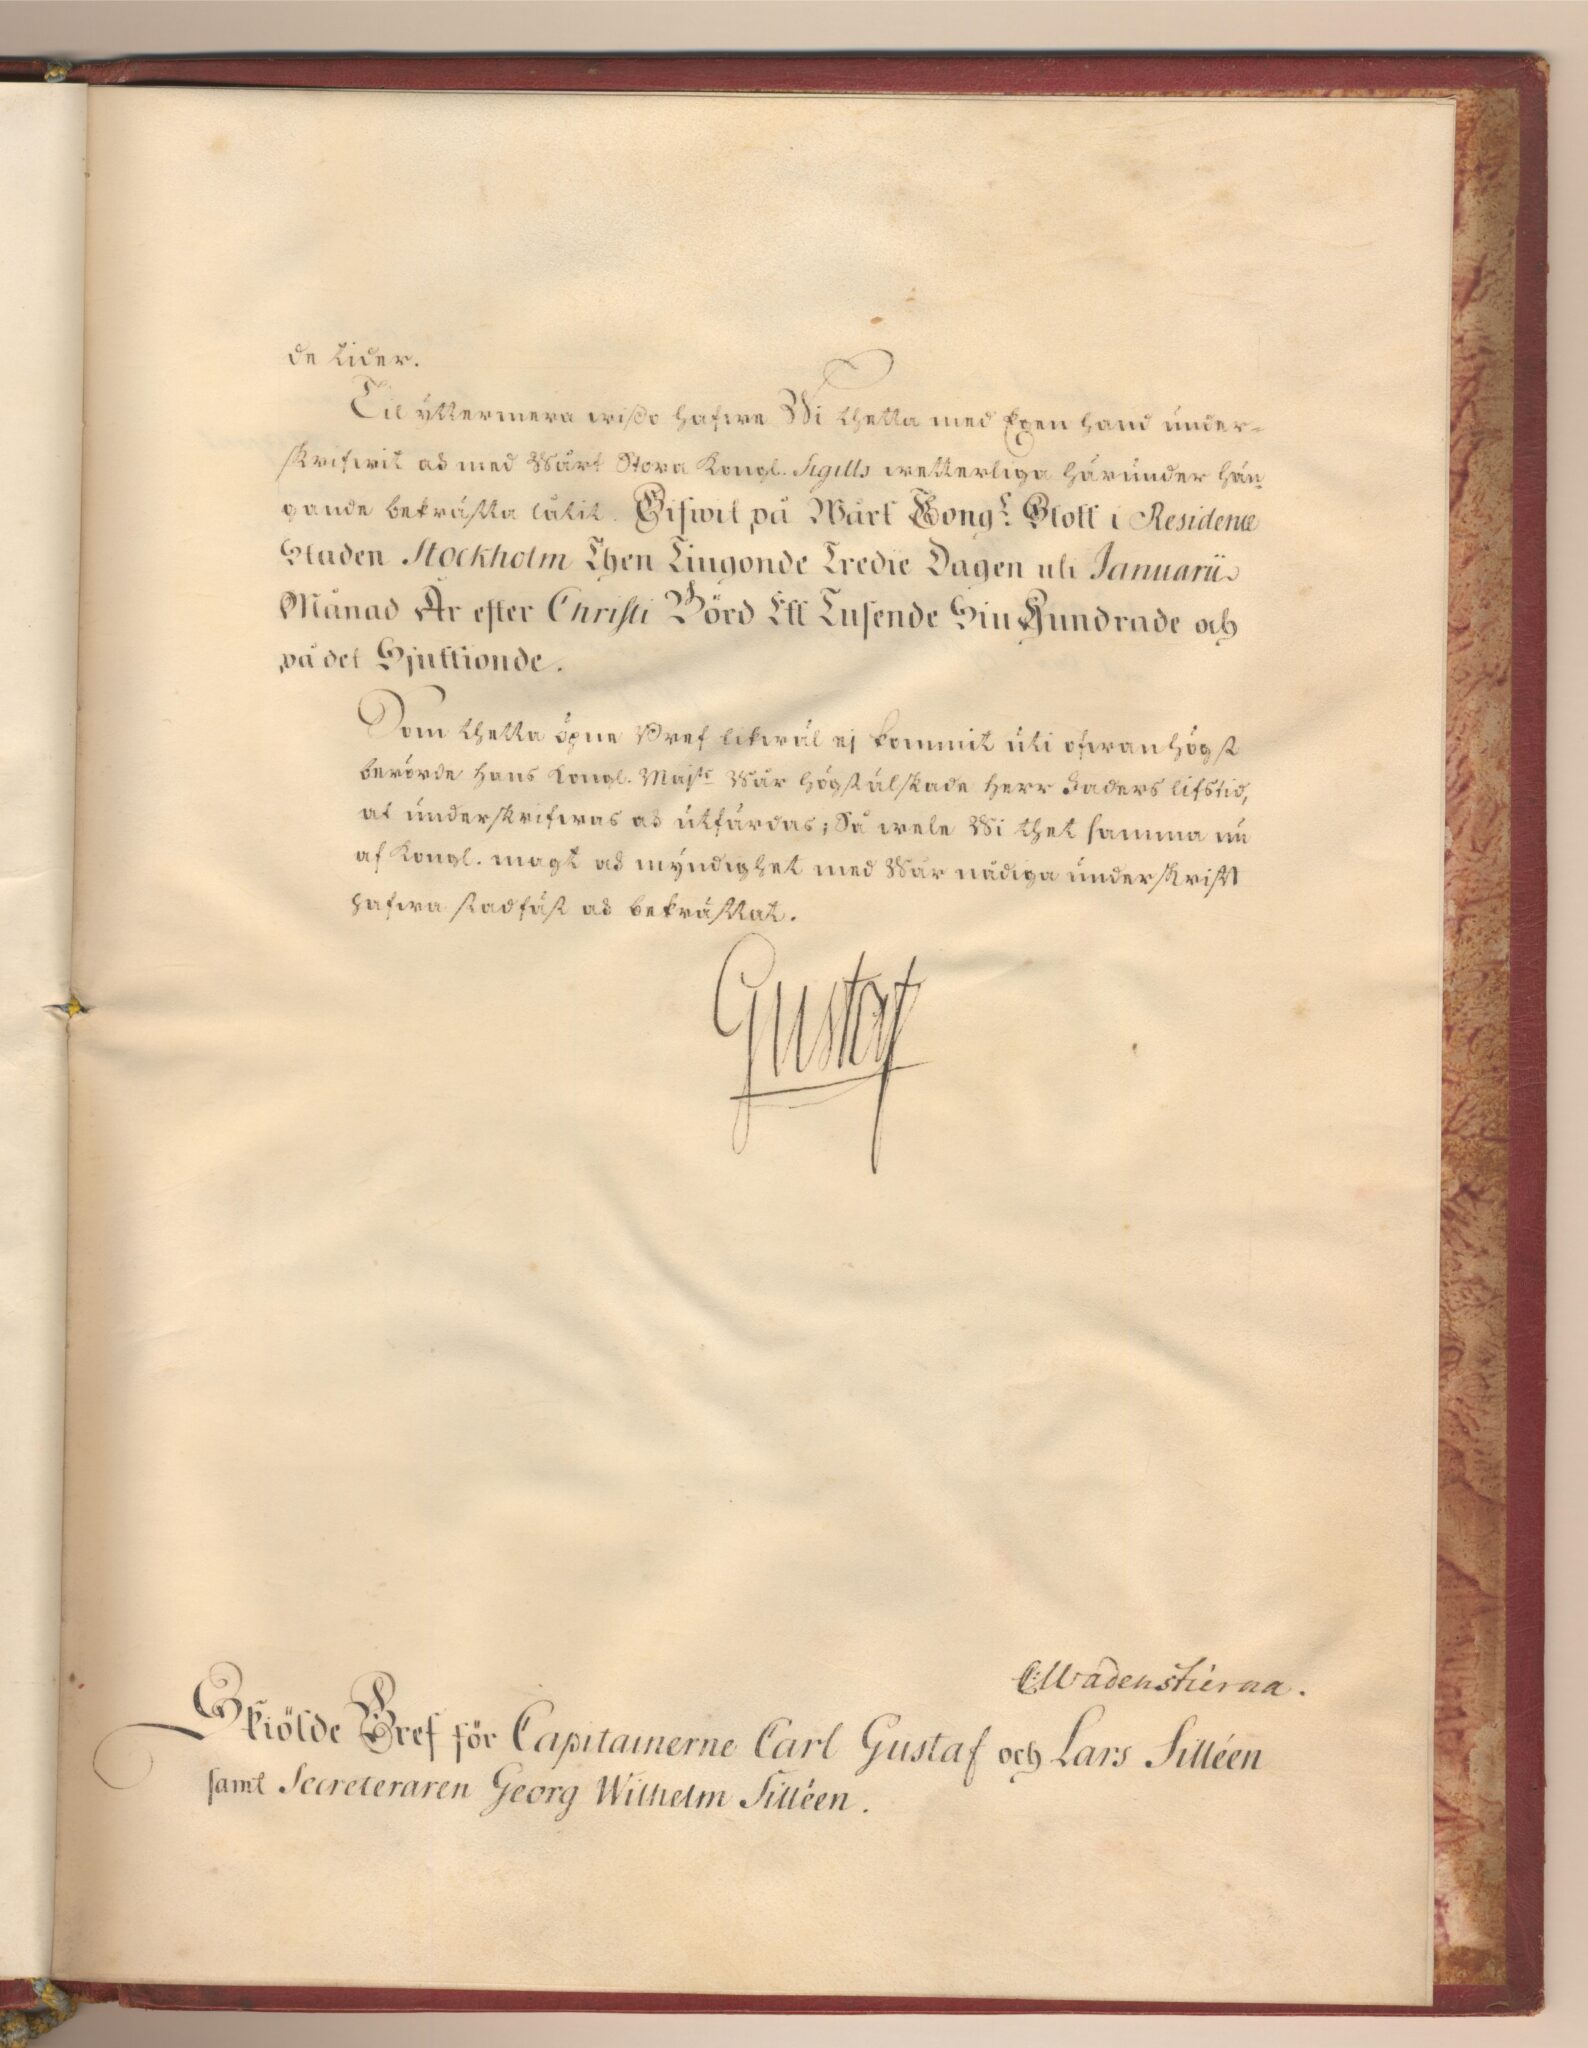 de tider.
Til ÿttermera wißo hafwe Wi thetta med Egen hand under-
skrifwit och med Wårt Stora Kongl. Sigills wetterliga härunder hän
gande bekräfta låtit. Gifwit på Wårt Kongl. Slott i Residence
Staden Stockholm Then Tiugonde Tredie Dagen uti Januarii
Månad År efter Christi Börd Ett Tusende Siu Hundrade och
på det Sjuttionde.
Som thetta öpne Bref likwäl ej kommit uti ofwanhögst
berörde Hans Kongl. Majts Wår Högstälskade Herr Faders lifstid,
at underskrifwas och utfärdas; Så wele Wi thet samma nu
af Kongl. magt och mÿndighet med Wår nådiga underskrift
hafwa stadfäst och bekräftat.
Gustaf
C: Wadenstierna.
Skiölde Bref för Capitainerne Carl Gustaf och Lars Silléen
samt Secreteraren Georg Wilhelm Silléen.